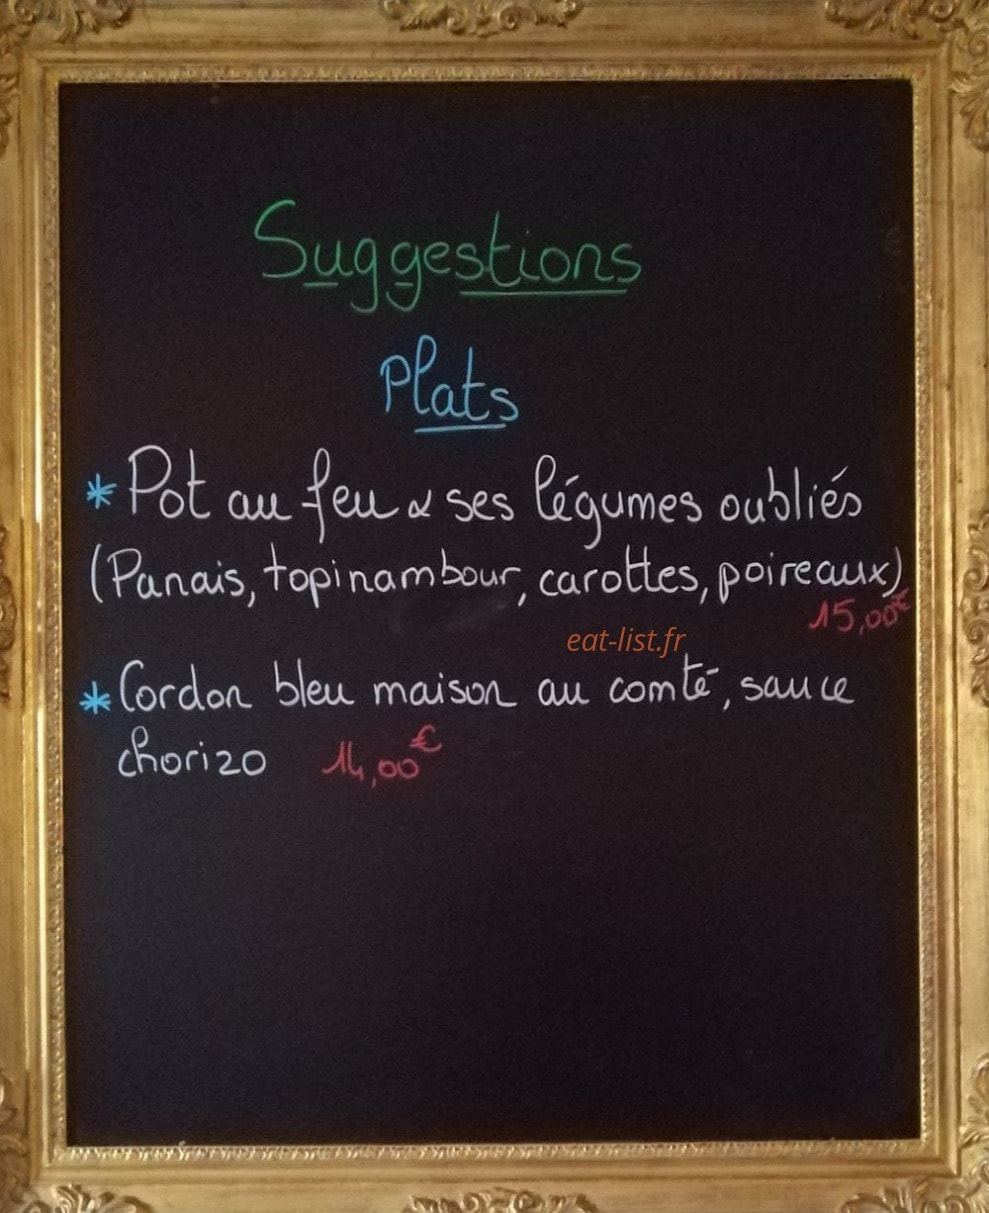 Suggestions
Plats
* Pot au feu & ses légumes oubliés
(Panais, topinambour, carottes, poireaux)
15,00€
eat-list.fr
* Cordon bleu maison au comté, sauce
chorizo 14,00€